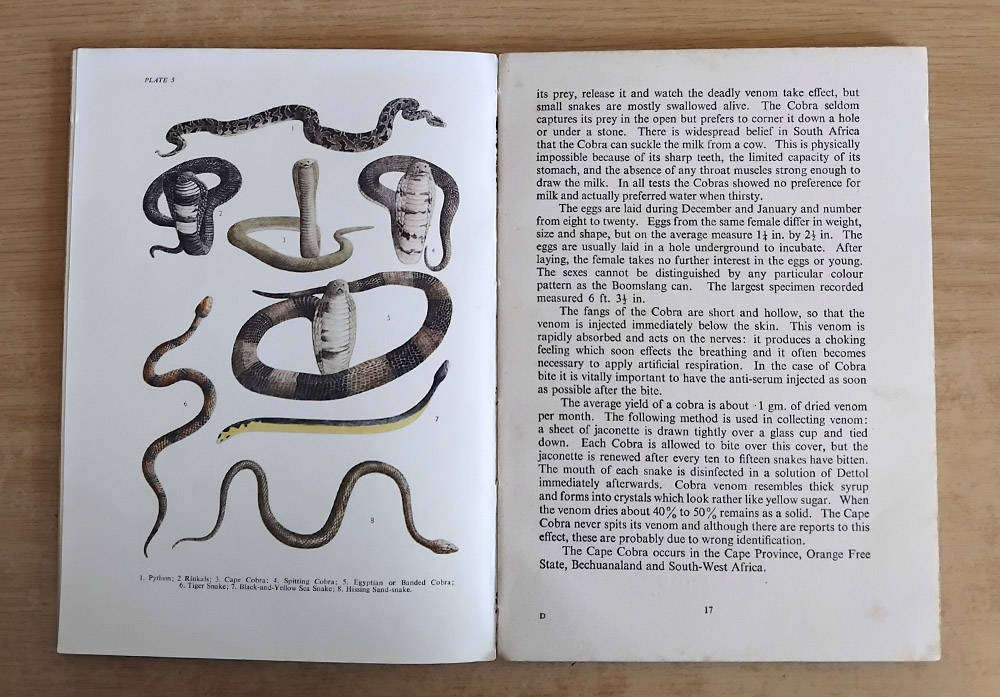 PLATE 3
1
2
3
4
5
6
7
8
1. Python; 2 Rinkals; 3. Cape Cobra; 4. Spitting Cobra; 5. Egyptian or Banded Cobra;
6. Tiger Snake; 7. Black-and-Yellow Sea Snake; 8. Hissing Sand-snake.
its prey, release it and watch the deadly venom take effect, but
small snakes are mostly swallowed alive. The Cobra seldom
captures its prey in the open but prefers to corner it down a hole
or under a stone. There is widespread belief in South Africa
that the Cobra can suckle the milk from a cow. This is physically
impossible because of its sharp teeth, the limited capacity of its
stomach, and the absence of any throat muscles strong enough to
draw the milk. In all tests the Cobras showed no preference for
milk and actually preferred water when thirsty.
The eggs are laid during December and January and number
from eight to twenty. Eggs from the same female differ in weight,
size and shape, but on the average measure 1¼ in. by 2½ in. The
eggs are usually laid in a hole underground to incubate. After
laying, the female takes no further interest in the eggs or young.
The sexes cannot be distinguished by any particular colour
pattern as the Boomslang can. The largest specimen recorded
measured 6 ft. 3½ in.
The fangs of the Cobra are short and hollow, so that the
venom is injected immediately below the skin. This venom is
rapidly absorbed and acts on the nerves: it produces a choking
feeling which soon effects the breathing and it often becomes
necessary to apply artificial respiration. In the case of Cobra
bite it is vitally important to have the anti-serum injected as soon
as possible after the bite.
The average yield of a cobra is about ·1 gm. of dried venom
per month. The following method is used in collecting venom:
a sheet of jaconette is drawn tightly over a glass cup and tied
down. Each Cobra is allowed to bite over this cover, but the
jaconette is renewed after every ten to fifteen snakes have bitten.
The mouth of each snake is disinfected in a solution of Dettol
immediately afterwards. Cobra venom resembles thick syrup
and forms into crystals which look rather like yellow sugar. When
the venom dries about 40% to 50% remains as a solid. The Cape
Cobra never spits its venom and although there are reports to this
effect, these are probably due to wrong identification.
The Cape Cobra occurs in the Cape Province, Orange Free
State, Bechuanaland and South-West Africa.
17
D